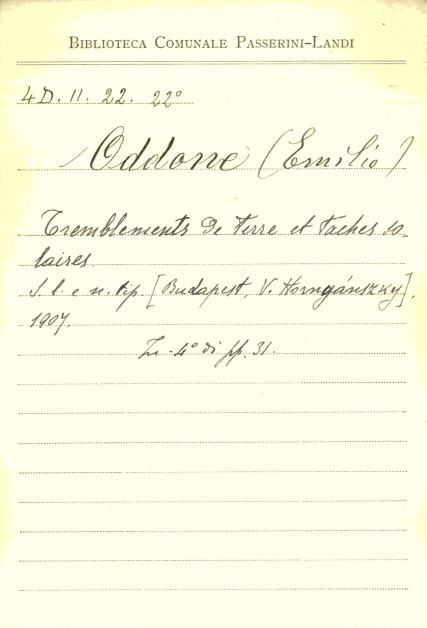 BIBLIOTECA COMUNALE PASSERINI-LANDI
4D. 11. 22. 22°
Oddone (Emilio)
Tremblements de terre et taches so-
laires.
S. l. e n. tip. [Budapest, V. Horngánszky],
1907.
In-4° di pp. 31.